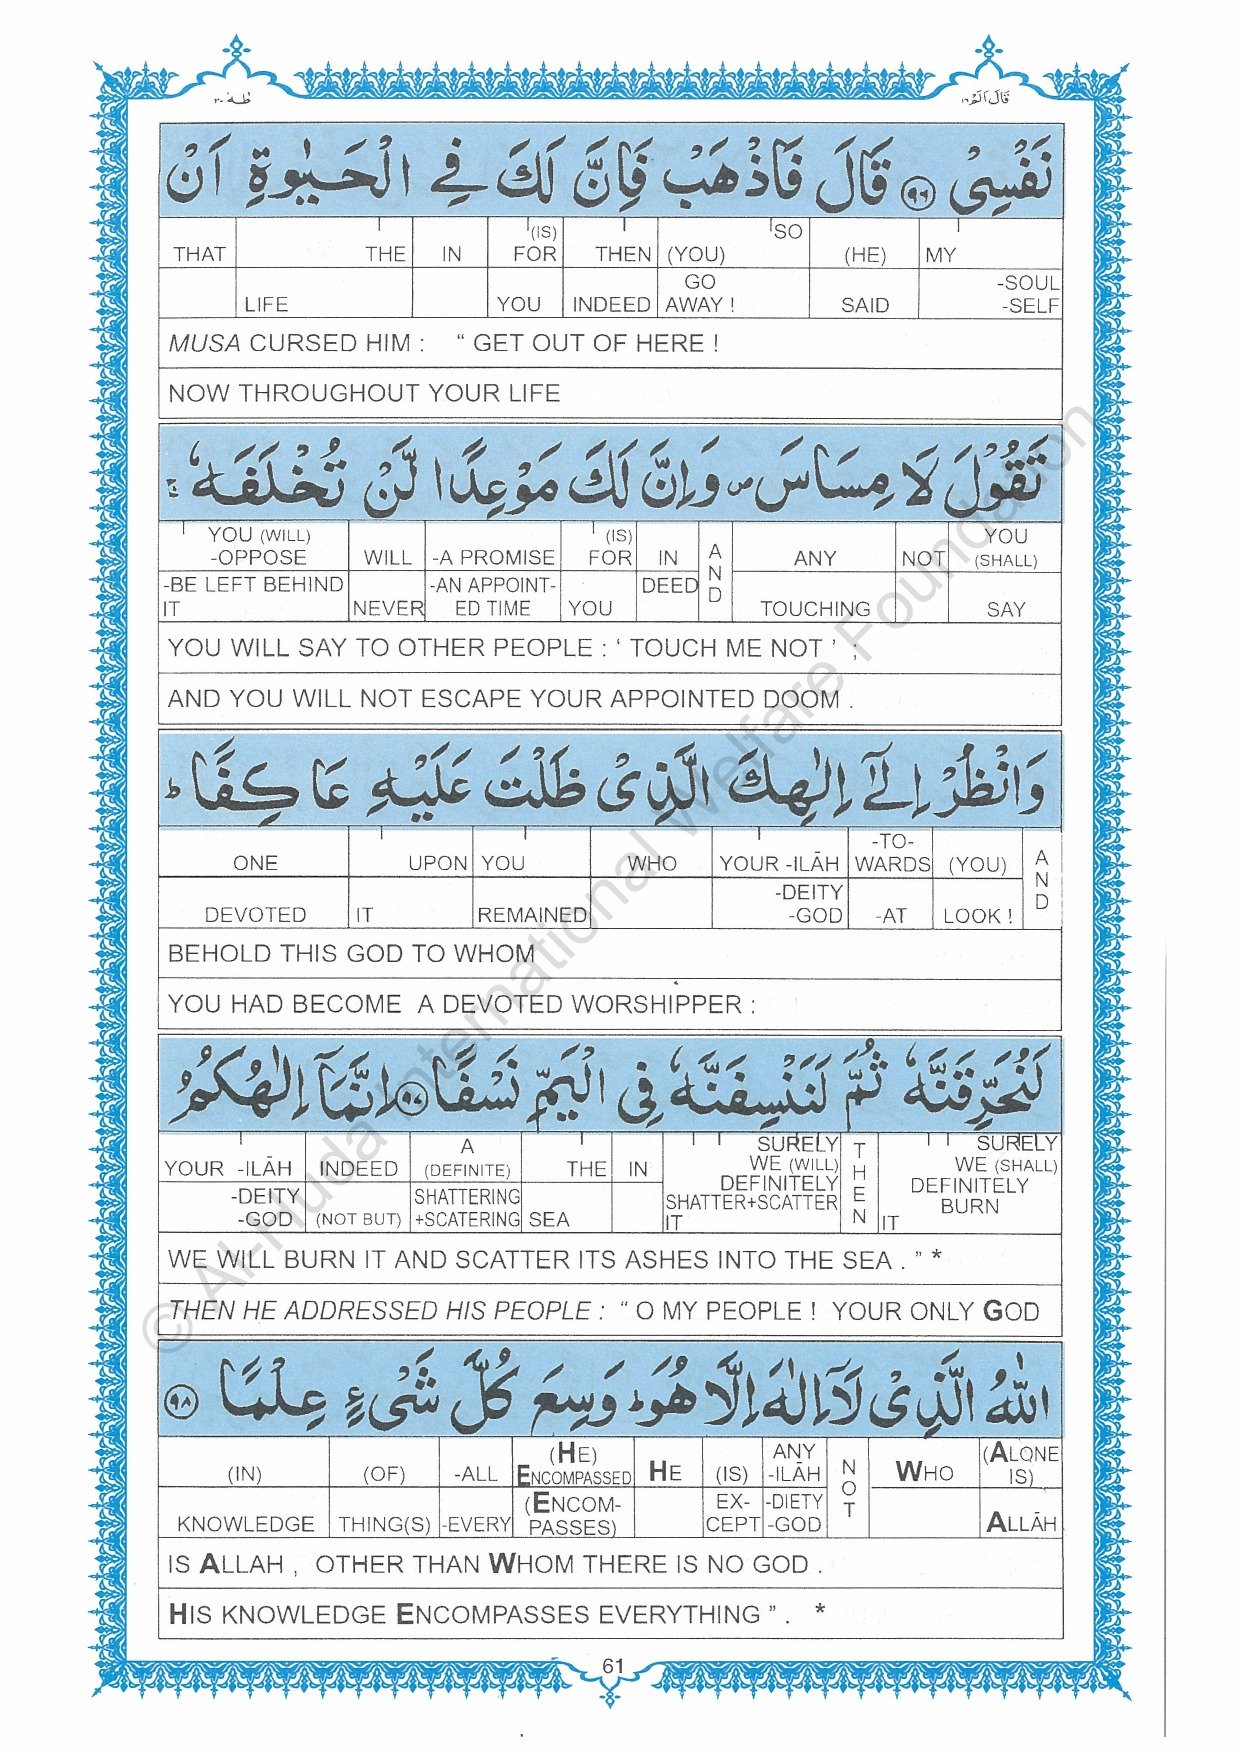 طٰهٰ ٢٠
قَالَ اَلَمْ ١٦
نَفْسِیْ ﴿۹۶﴾ قَالَ فَاذْهَبْ فَاِنَّ لَكَ فِی الْحَیٰوةِ اَنْ
THAT THE IN (IS) FOR THEN (YOU) SO (HE) MY
LIFE YOU INDEED GO AWAY ! SAID -SOUL -SELF
MUSA CURSED HIM : “ GET OUT OF HERE !
NOW THROUGHOUT YOUR LIFE
تَقُوْلَ لَا مِسَاسَ ۪ وَاِنَّ لَكَ مَوْعِدًا لَّنْ تُخْلَفَهٗ ۚ
YOU (WILL) -OPPOSE WILL -A PROMISE (IS) FOR IN AND ANY NOT YOU (SHALL)
-BE LEFT BEHIND IT NEVER -AN APPOINT- ED TIME YOU DEED TOUCHING SAY
YOU WILL SAY TO OTHER PEOPLE : ‘ TOUCH ME NOT ’ ;
AND YOU WILL NOT ESCAPE YOUR APPOINTED DOOM .
وَانْظُرْ اِلٰۤی اِلٰهِكَ الَّذِیْ ظَلْتَ عَلَیْهِ عَاكِفًا ؕ
ONE UPON YOU WHO YOUR -ILĀH -TO- WARDS (YOU) AND
DEVOTED IT REMAINED -DEITY -GOD -AT LOOK !
BEHOLD THIS GOD TO WHOM
YOU HAD BECOME A DEVOTED WORSHIPPER :
لَنُحَرِّقَنَّهٗ ثُمَّ لَنَنْسِفَنَّهٗ فِی الْیَمِّ نَسْفًا ﴿۹۷﴾ اِنَّمَاۤ اِلٰهُكُمُ
YOUR -ILĀH INDEED A (DEFINITE) THE IN SURELY WE (WILL) DEFINITELY SHATTER+SCATTER IT THEN SURELY WE (SHALL) DEFINITELY BURN IT
-DEITY -GOD (NOT BUT) SHATTERING +SCATERING SEA
WE WILL BURN IT AND SCATTER ITS ASHES INTO THE SEA . ” *
THEN HE ADDRESSED HIS PEOPLE : “ O MY PEOPLE ! YOUR ONLY GOD
اللّٰهُ الَّذِیْ لَاۤ اِلٰهَ اِلَّا هُوَ ؕ وَسِعَ كُلَّ شَیْءٍ عِلْمًا ﴿۹۸﴾
(IN) (OF) -ALL (HE) ENCOMPASSED HE (IS) ANY -ILĀH NOT WHO (ALONE IS)
KNOWLEDGE THING(S) -EVERY (ENCOM- PASSES) EX- CEPT -DIETY -GOD ALLĀH
IS ALLAH , OTHER THAN WHOM THERE IS NO GOD .
HIS KNOWLEDGE ENCOMPASSES EVERYTHING ” . *
61
© Al-Huda International Welfare Foundation